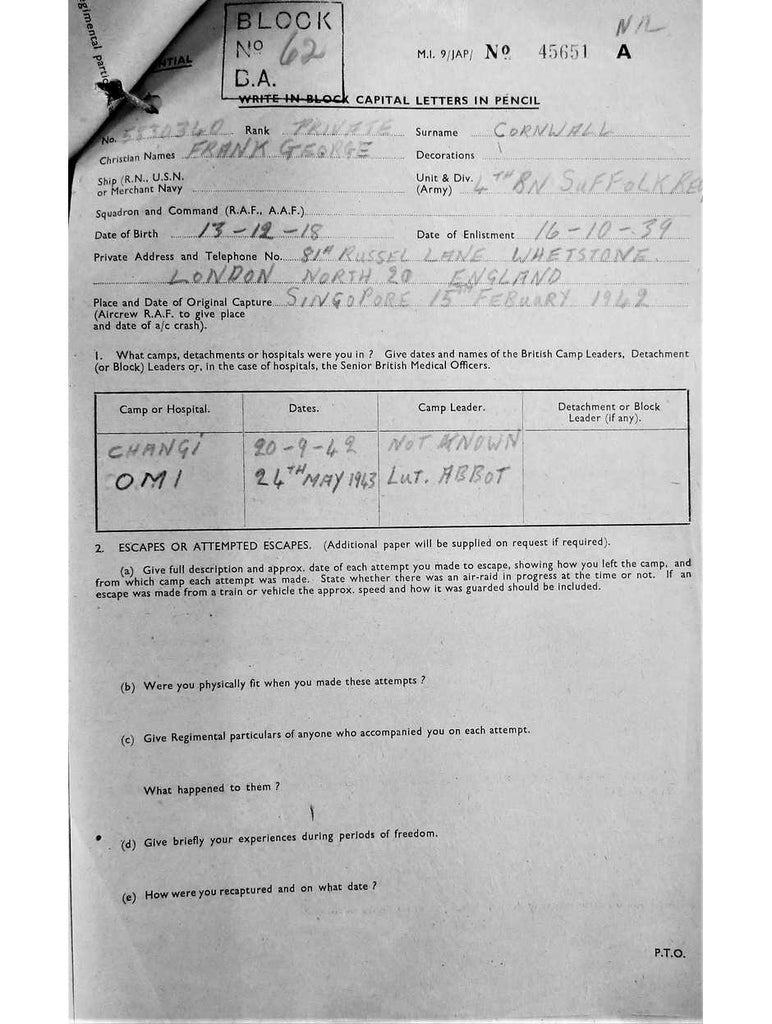 egimental partic
NTIAL
BLOCK
Nº 62
D.A.
NIL
M.I. 9/JAP/ Nº 45651 A
WRITE IN BLOCK CAPITAL LETTERS IN PENCIL
No. 5830340 Rank PRIVATE Surname CORNWALL
Christian Names FRANK GEORGE Decorations
Ship (R.N., U.S.N. or Merchant Navy Unit & Div. (Army) 4TH BN SUFFOLK REG
Squadron and Command (R.A.F., A.A.F.)
Date of Birth 13-12-18 Date of Enlistment 16-10-39
Private Address and Telephone No. 81A RUSSEL LANE WHETSTONE.
LONDON NORTH 20 ENGLAND
Place and Date of Original Capture SINGOPORE 15TH FEBUARY 1942
(Aircrew R.A.F. to give place
and date of a/c crash).
1. What camps, detachments or hospitals were you in ? Give dates and names of the British Camp Leaders, Detachment
(or Block) Leaders or, in the case of hospitals, the Senior British Medical Officers.
Camp or Hospital. Dates. Camp Leader. Detachment or Block Leader (if any).
CHANGI 20-9-42 NOT KNOWN
OMI 24TH MAY 1943 LUT. ABBOT
2. ESCAPES OR ATTEMPTED ESCAPES. (Additional paper will be supplied on request if required).
(a) Give full description and approx. date of each attempt you made to escape, showing how you left the camp, and
from which camp each attempt was made. State whether there was an air-raid in progress at the time or not. If an
escape was made from a train or vehicle the approx. speed and how it was guarded should be included.
(b) Were you physically fit when you made these attempts ?
(c) Give Regimental particulars of anyone who accompanied you on each attempt.
What happened to them ?
(d) Give briefly your experiences during periods of freedom.
(e) How were you recaptured and on what date ?
P.T.O.